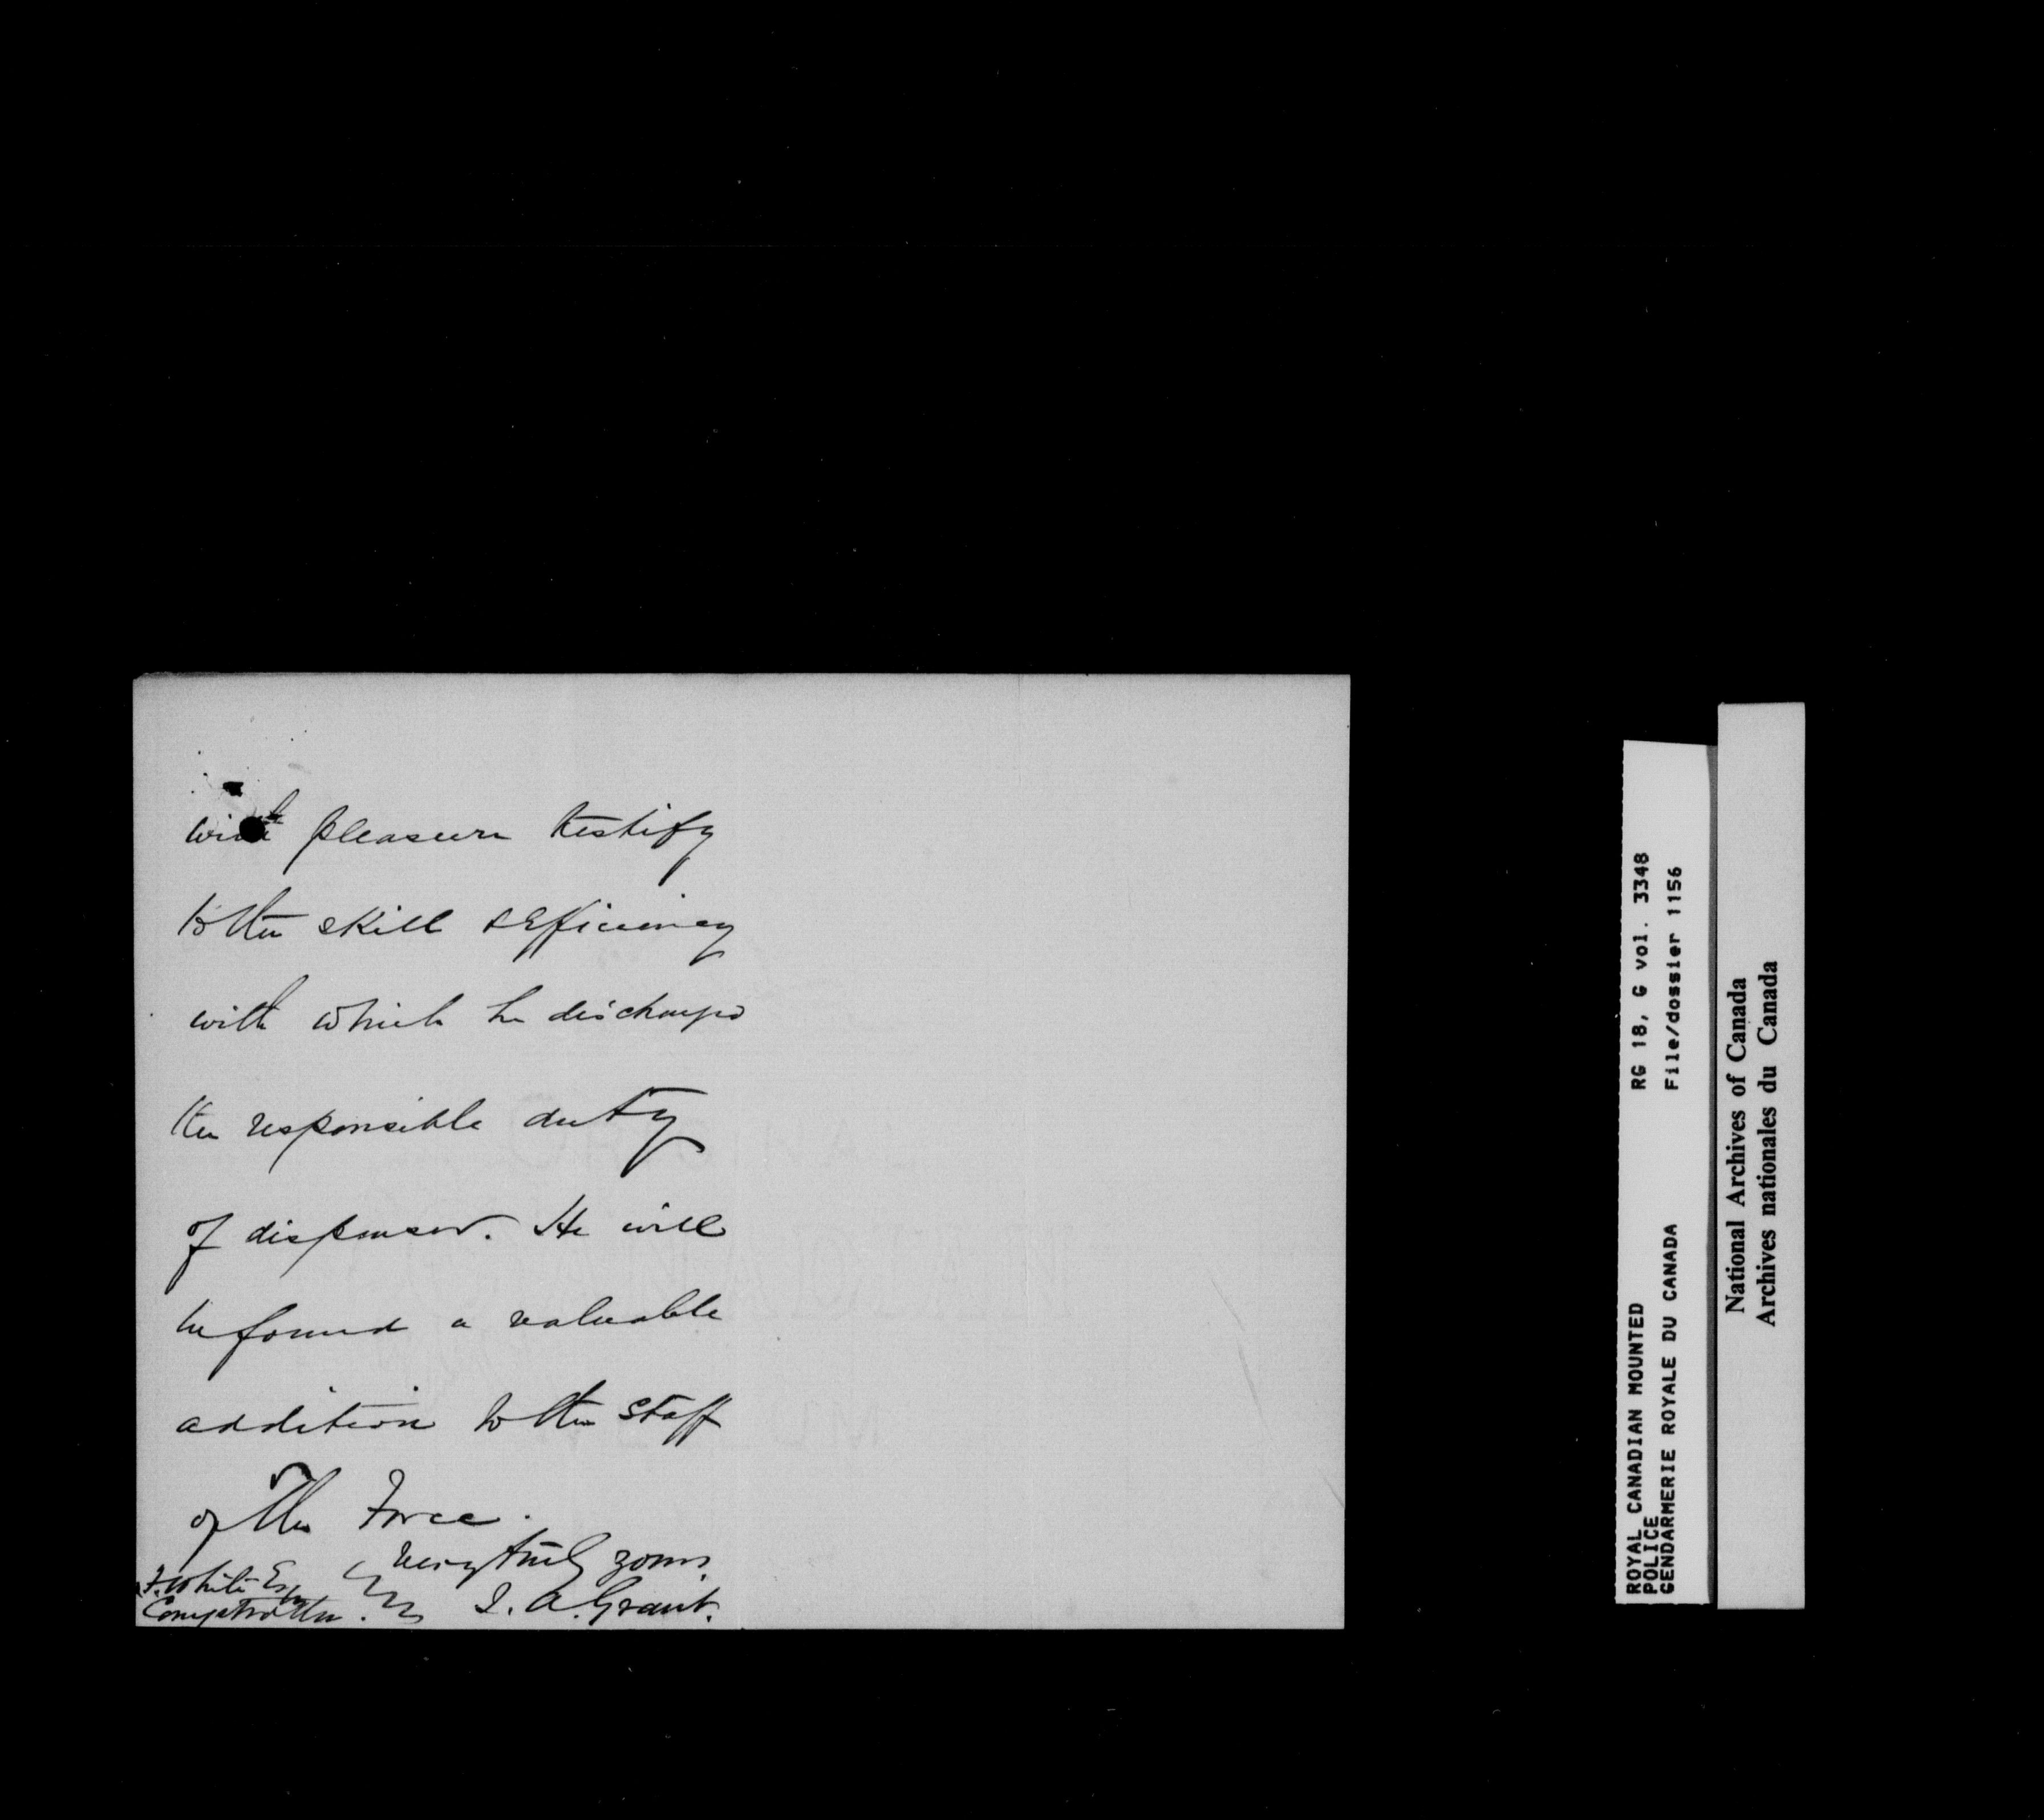 with pleasure testify
to the skill & Efficiency
with which he discharged
the responsible duty
of dispenser. He will
be found a valuable
addition to the Staff
of the Force.
very truly yours
F. White Esq
J. A. Grant.
Comptroller.
ROYAL CANADIAN MOUNTED RG 18, G vol. 3348
POLICE
GENDARMERIE ROYALE DU CANADA File/dossier 1156
National Archives of Canada
Archives nationales du Canada